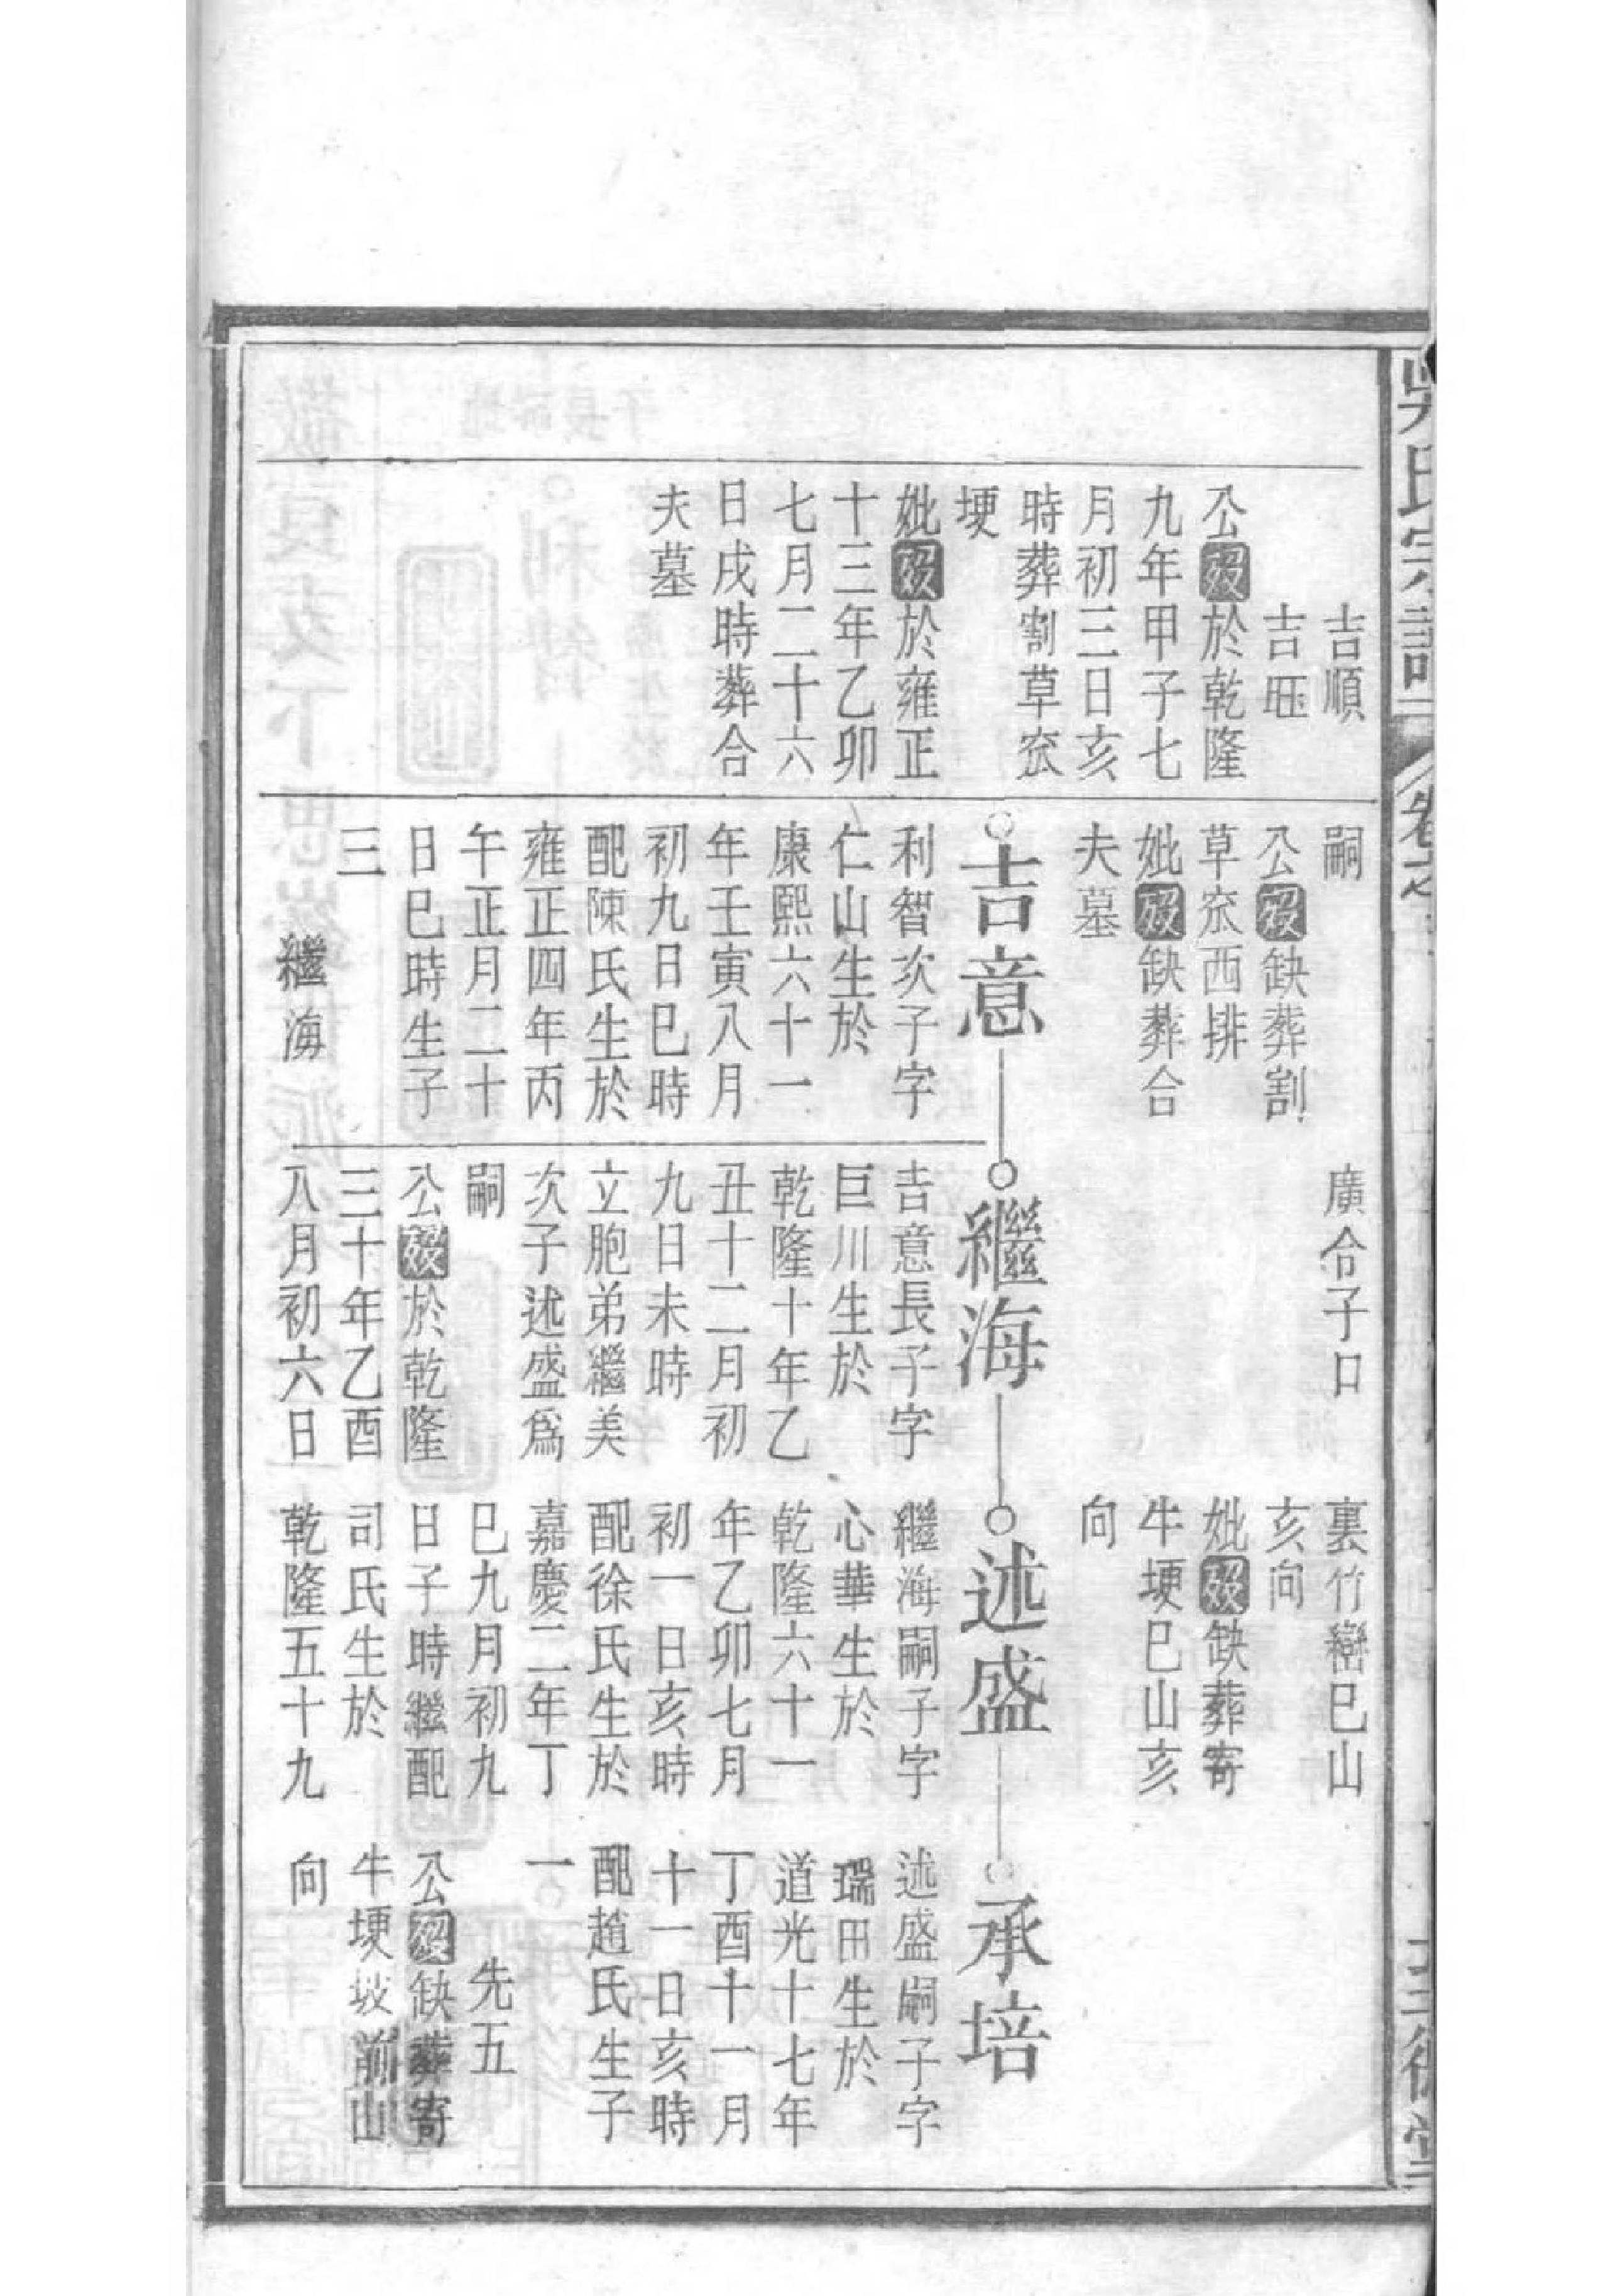 吳氏宗譜
卷
三
吉順
吉㫤
公歿於乾隆
九年甲子七
月初三日亥
時葬割草泶
埂
妣歿於雍正
十三年乙卯
七月二十六
日戌時葬合
夫墓
嗣
公歿缺葬割
草泶西排
妣歿缺葬合
夫墓
吉意
利智次子字
仁山生於
康熙六十一
年壬寅八月
初九日巳時
配陳氏生於
雍正四年丙
午正月二十
日巳時生子
三
繼海
廣令子口
繼海
吉意長子字
巨川生於
乾隆十年乙
丑十二月初
九日未時
立胞弟繼美
次子述盛爲
嗣
公歿於乾隆
三十年乙酉
八月初六日
裏竹巒巳山
亥向
妣歿缺葬寄
牛埂巳山亥
向
述盛
繼海嗣子字
心華生於
乾隆六十一
年乙卯七月
初一日亥時
配徐氏生於
嘉慶二年丁
巳九月初九
日子時繼配
司氏生於
乾隆五十九
承培
述盛嗣子字
瑞田生於
道光十七年
丁酉十一月
十一日亥時
配趙氏生子
一
先五
公歿缺葬寄
牛埂坡前山
向